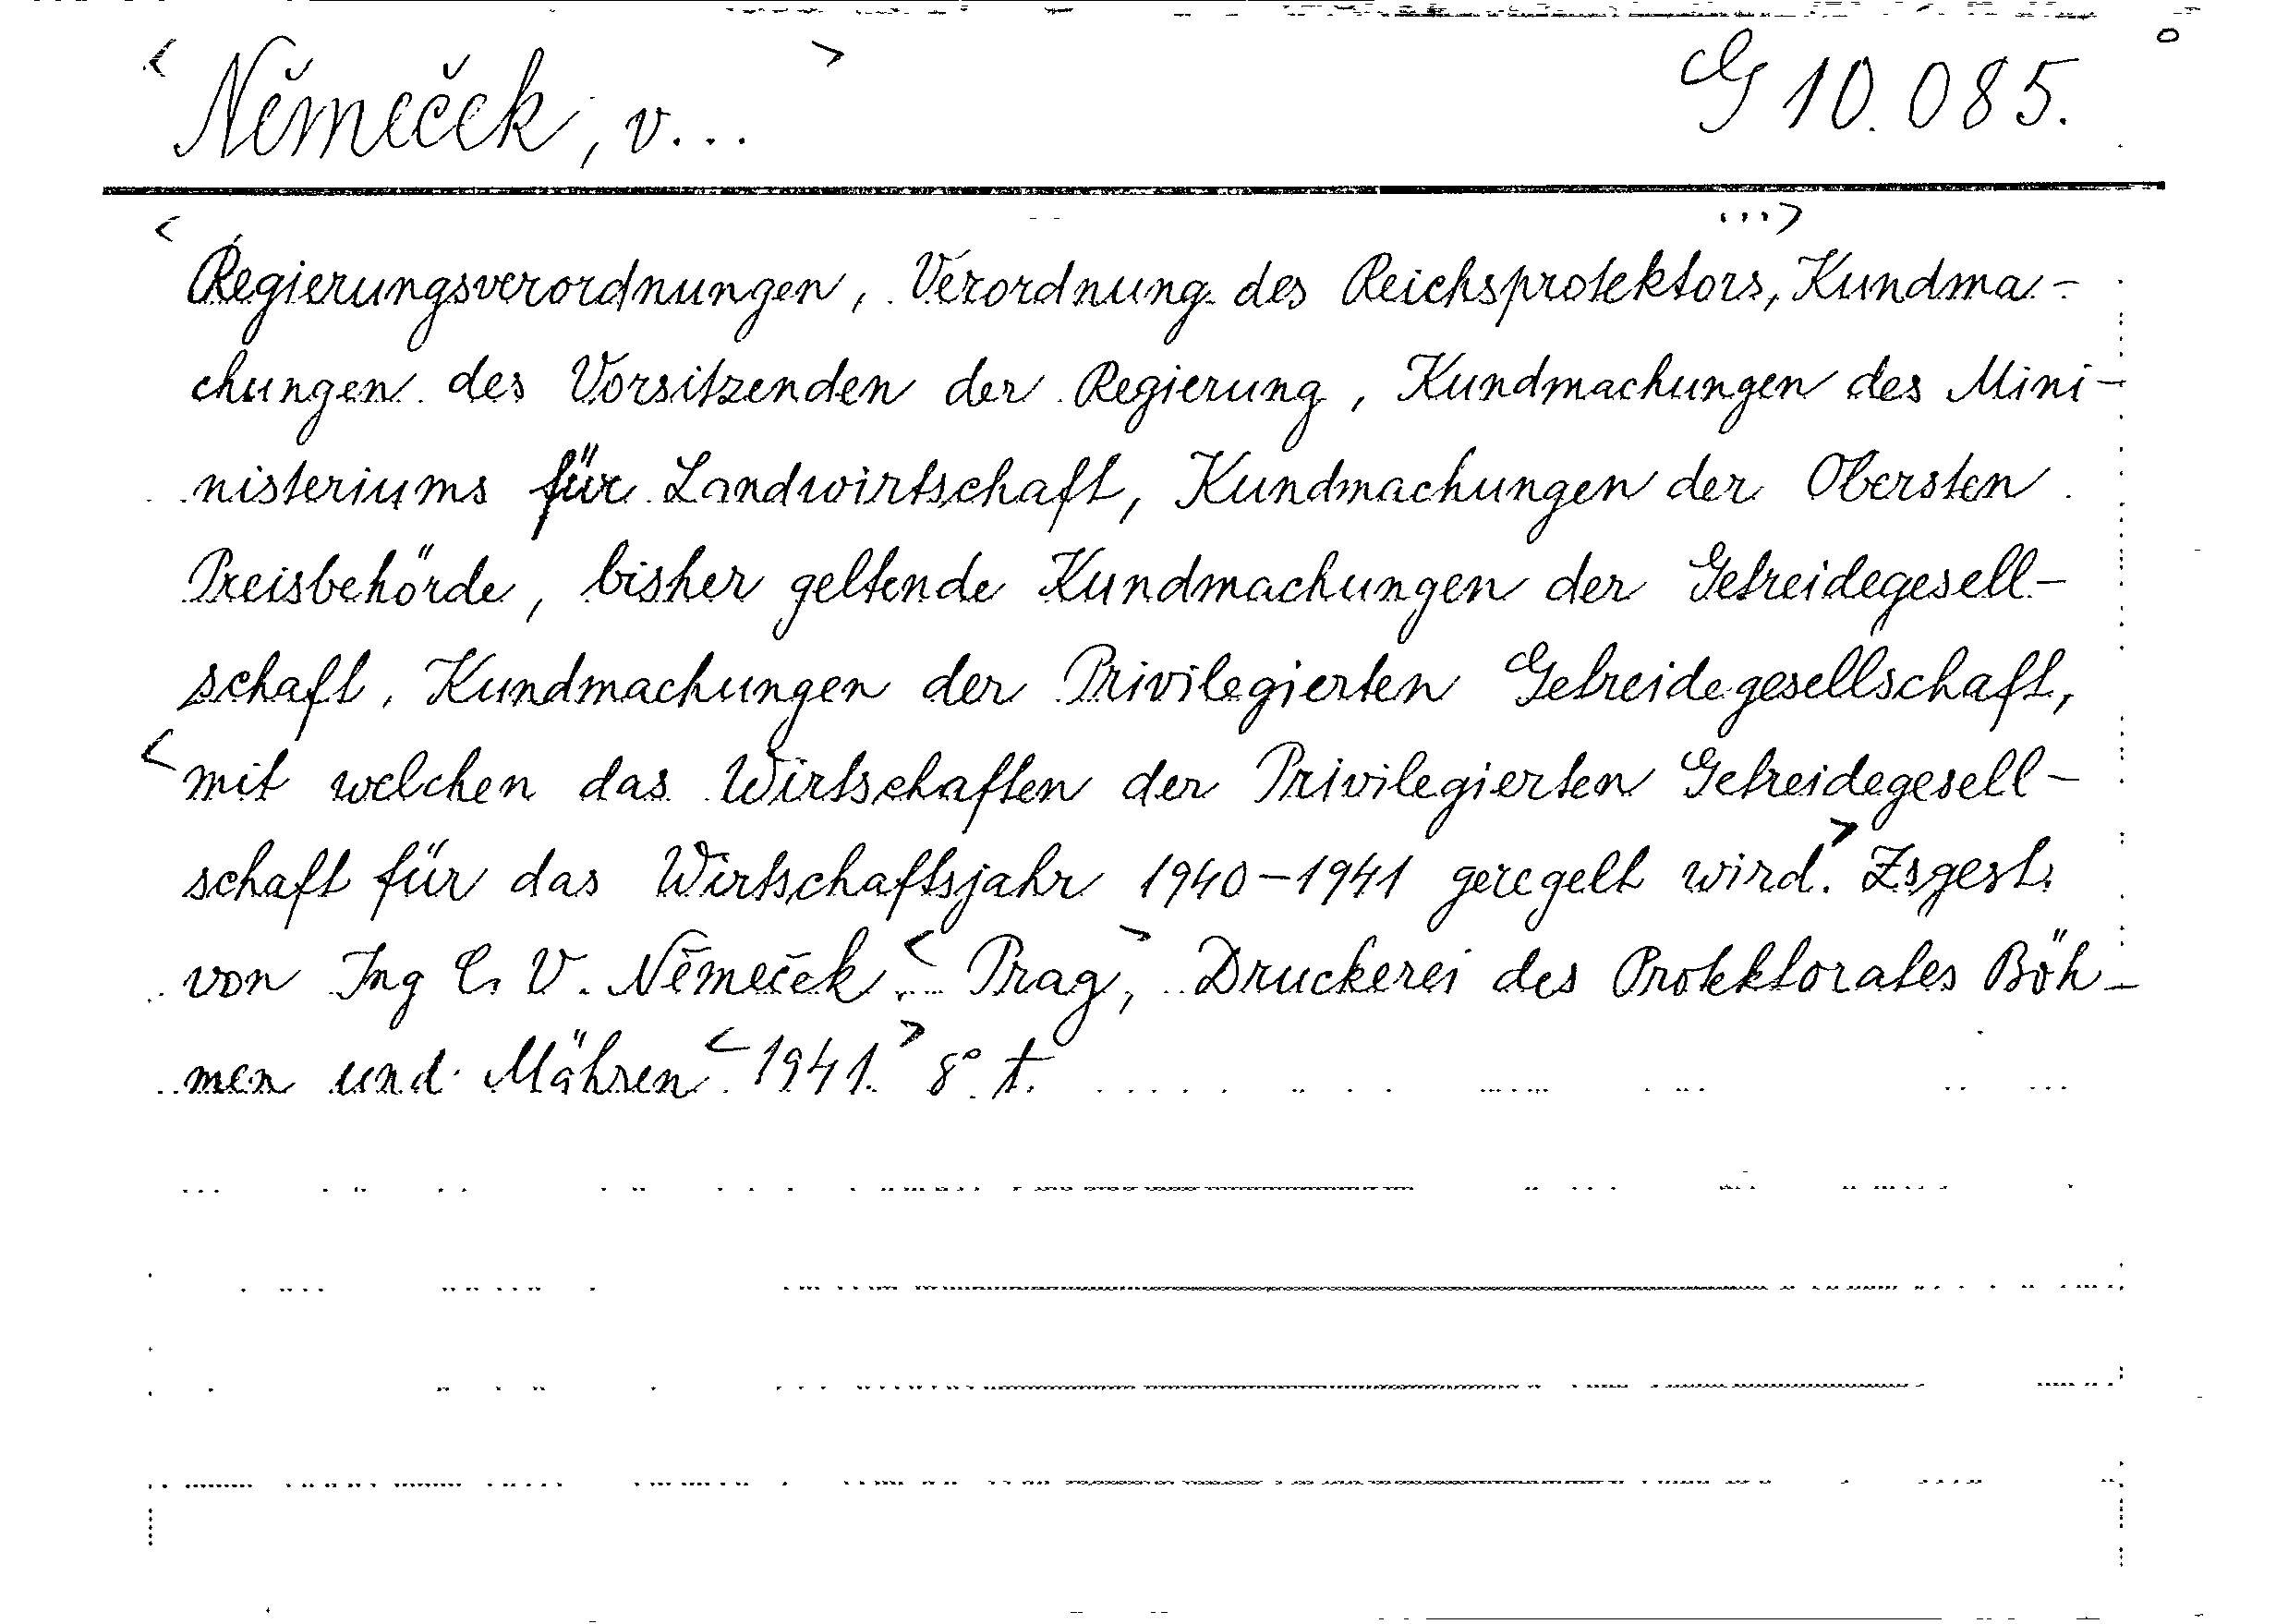 < Němeček, v... > G 10.085.
< Regierungsverordnungen, Verordnung des Reichsprotektors, ...> Kundma-
chungen des Vorsitzenden der Regierung, Kundmachungen des Mini-
nisteriums für Landwirtschaft, Kundmachungen der Obersten
Preisbehörde, bisher geltende Kundmachungen der Getreidegesell-
schaft, Kundmachungen der Privilegierten Getreidegesellschaft,
< mit welchen das Wirtschaften der Privilegierten Getreidegesell-
schaft für das Wirtschaftsjahr 1940-1941 geregelt wird.> Zsgest.
von Ing C. V. Němeček. < Prag, > Druckerei des Protektorates Böh-
men und Mähren < 1941. > 8° t.